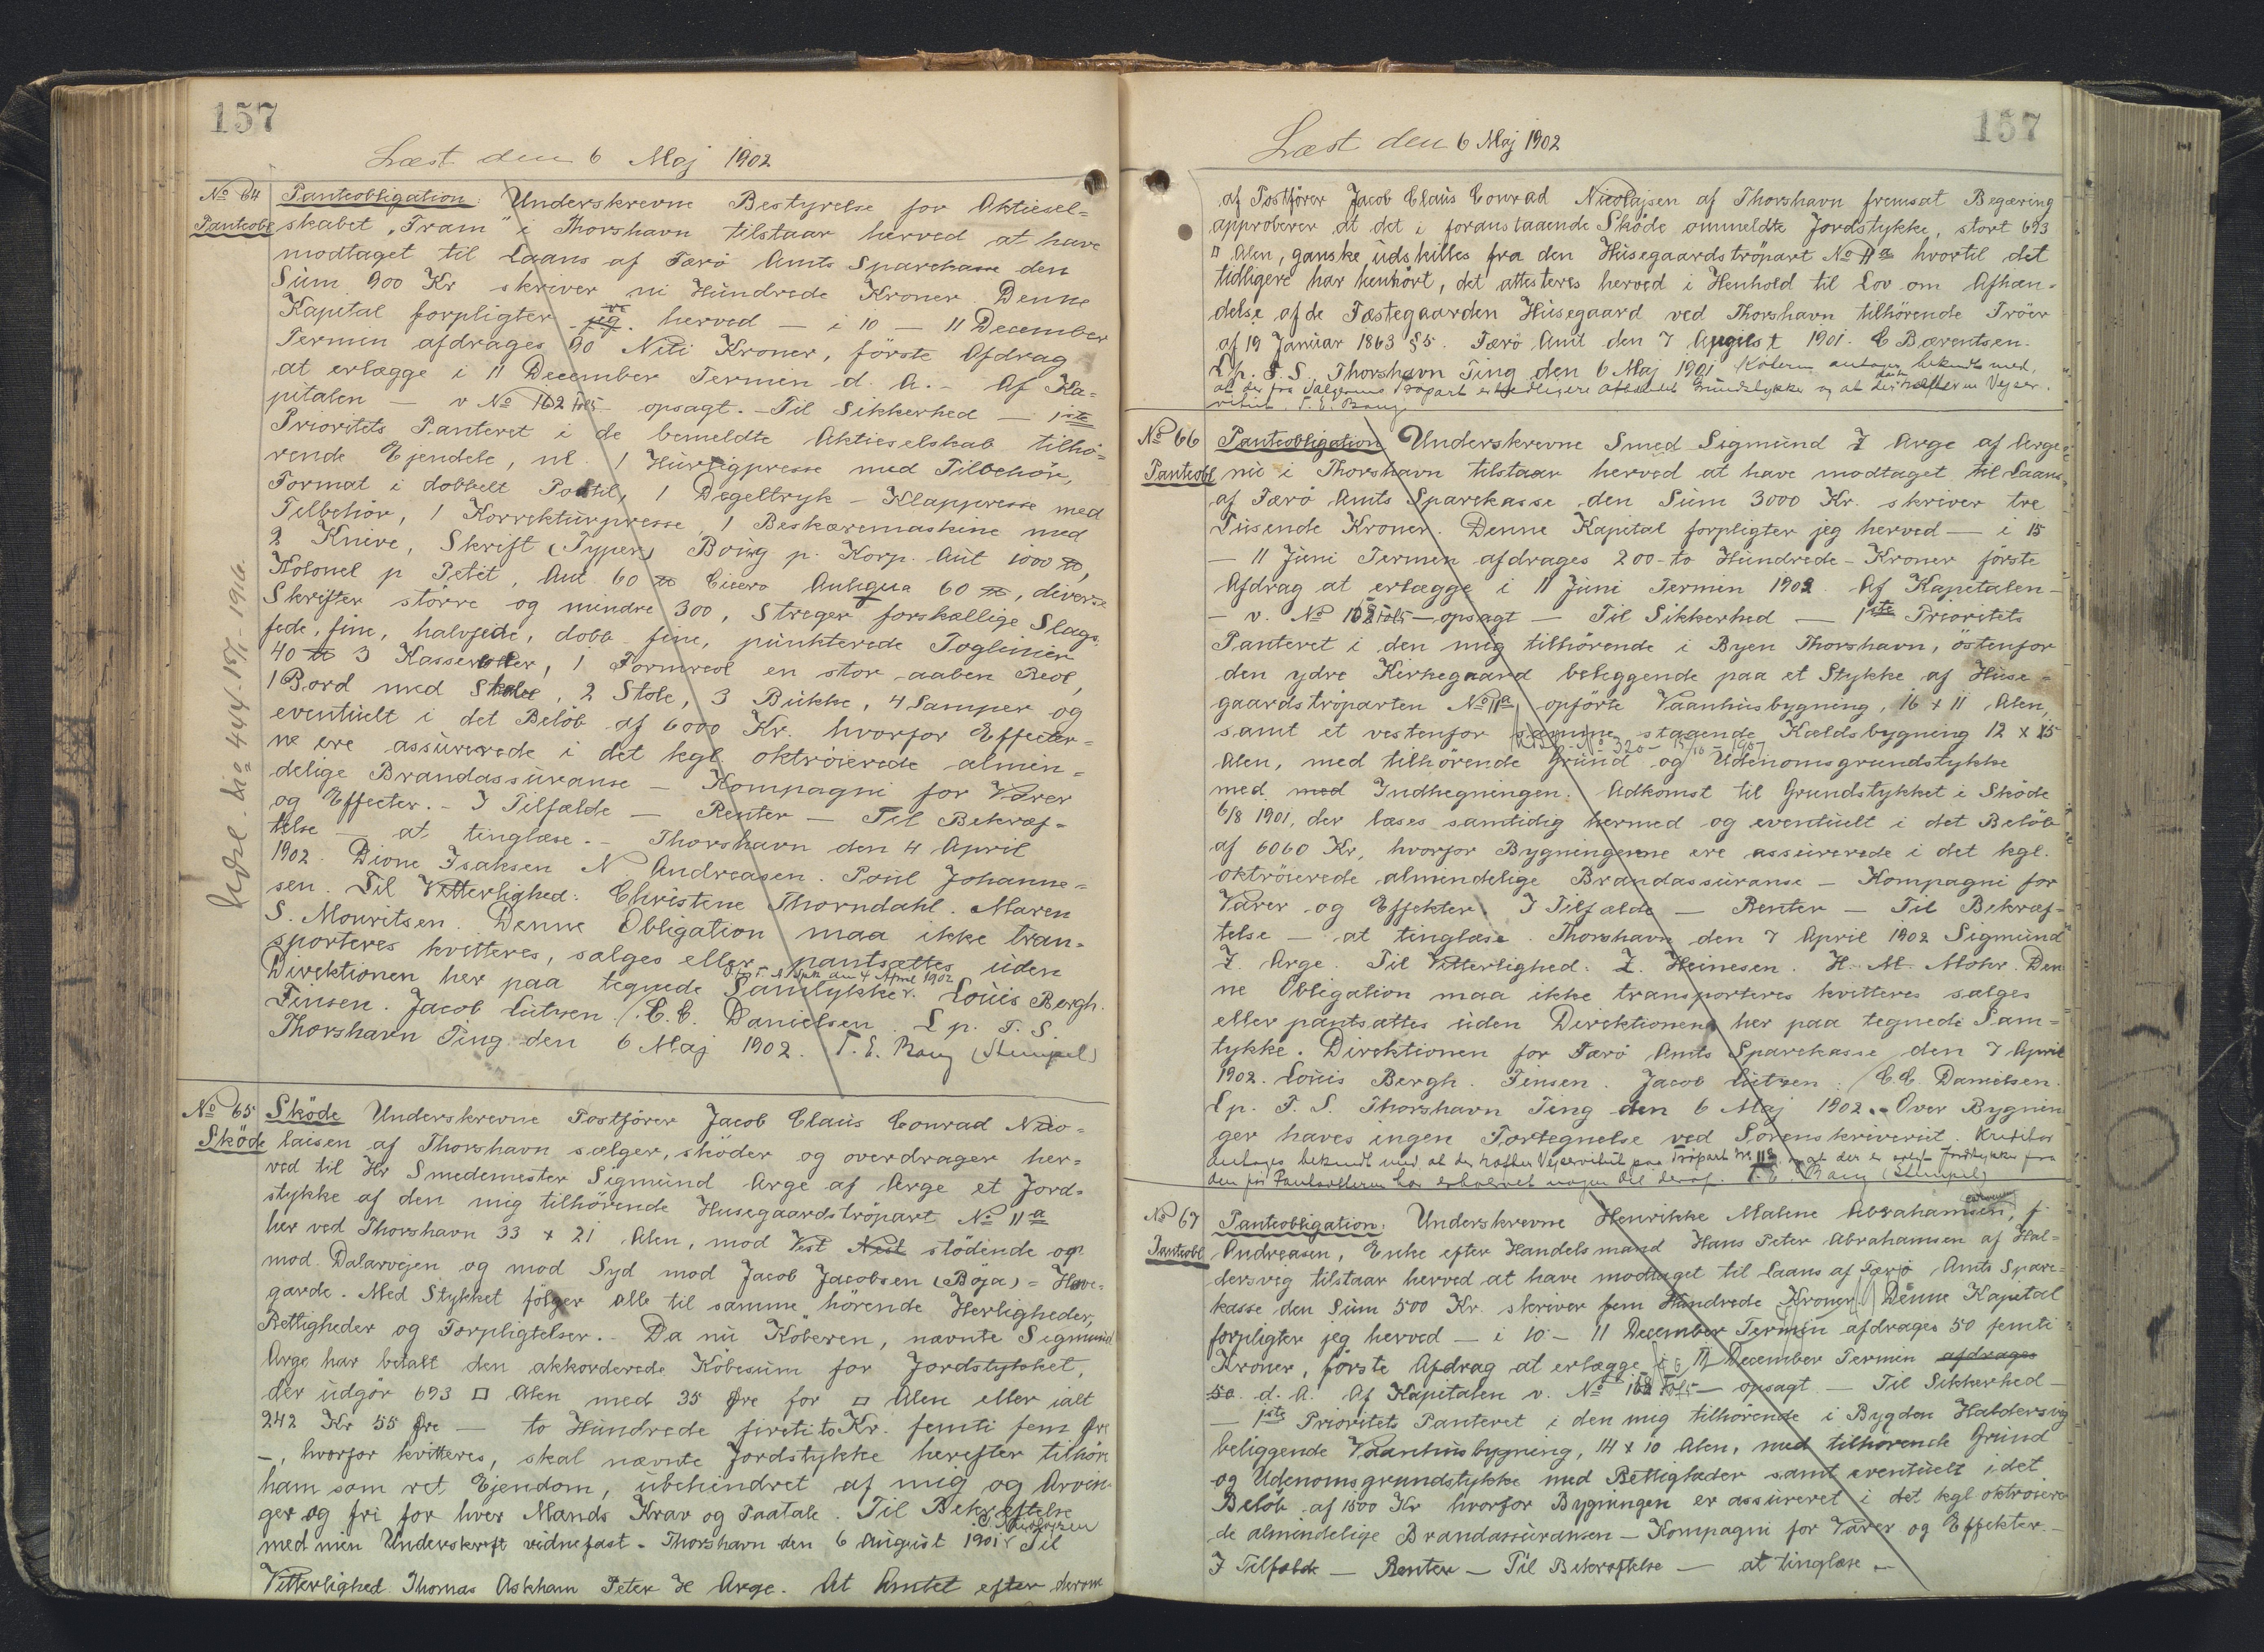 157
Læst den 6 Maj 1902
No 64 Panteobligation: Underskrevne Bestyrelse for Aktiesel-
Panteobl skabet "Fram" i Thorshavn tilstaar herved at have
modtaget til Laans af Færö Amts Sparekasse den
Süm 900 Kr skriver ni Hündrede Kroner. Denne
Kapital forpligter jeg vi herved — i 10 — 11 December
Termin afdrages 90 Niti Kroner, förste Afdrag
at erlægge i 11 December Termin d. A. - Af Ka-
pitalen — v No 162 Fol5 opsagt. - Til Sikkerhed — 1ste
Prioritets Panteret i de bemeldte Aktieselskab tilhö-
rende Ejendele, nl. 1 Hürtigpresse med Tilbehör,
Format i dobbelt Postil, 1 Degeltryk - Klappresse med
Tilbehör, 1 Korrektürpresse, 1 Beskæremaskine med
2 Knive, Skrift (Typer) Boürg p. Korp. Ant 1000 ℔,
Kolonel p Petit, Ant 60 ℔ Cicero Antiqua 60 ℔, diverse
Skrifter större og mindre 300, Streger forskællige Slags
fede, fine, halvfede, dobb fine, pünkterede Toglinier
40 ℔ 3 Kassereoler, 1 Formreol en stor aaben Reol,
1 Bord med Skabe, 2 Stole, 3 Bükke, 4 Lamper og
eventüelt i det Belöb af 6000 Kr. hvorfor Effecter-
ne ere assürerede i det kgl. oktröierede almin-
delige Brandassüranse — Kompagni for Varer
og Effecter. - I Tilfælde — Renter — Til Bekræf-
telse — at tinglæse. - Thorshavn den 4 April
1902. Dione Isaksen N Andreasen. Poül Johanne-
sen. Til Vitterlighed: Christene Thorndahl. Maren
S. Mouritsen. Denne Obligation maa ikke tran-
sporteres kvitteres, sælges eller pantsættes üden
Direktionen her paa tegnede Samtykke. Louis Bergh.
Finsen. Jacob Lützen /. C. C. Danielsen. L p. F. S.
Thorshavn Ting den 6 Maj 1902. F. E. Bang (Stempel)
Vidre. Lit 444. 15/1 - 1916.
No 65 Sköde Underskrevne Postförer Jacob Claüs Conrad Nico-
Sköde laisen af Thorshavn sælger, sköder og overdrager her-
ved til Hr Smedemester Sigmünd Arge af Arge et Jord-
stykke af den mig tilhörende Husegaardströpart No 11a
her ved Thorshavn 33 x 21 Alen, mod Vest Nest stödende op
mod Dalarvejen og mod Syd mod Jacob Jacobsen (Böja) = Have-
garde. Med Stykket fölger alle til samme hörende Herligheder,
Rettigheder og Forpligtelser. - Da nü Köberen, nævnte Sigmünd
Arge har betalt den akkorderede Köbesüm for Jordstykket,
der üdgör 693 □ Alen med 35 Øre for □ Alen eller ialt
242 Kr 55 Øre — to Hündrede firetito Kr. femti fem Øre
-, hvorfor kvitteres, skal nævnte Jordstykke herefter tilhöre
ham som ret Ejendom, übehindret af mig og Arvin-
ger og fri for hver Mands Krav og Paatale. Til Bekræftelse
med min Underskrift vidnefast. - Thorshavn den 6 Aügüst 1901 C. Nicolajsen Til
Vitterlighed Thomas Askham Peter H Arge. At Amtet efter derom
157
Læst den 6 Maj 1902
af Postförer Jacob Claüs Conrad Nicolajsen af Thorshavn fremsat Begæring
approberer at det i foranstaaende Sköde ommeldte Jordstykke, stort 693
□ Alen, ganske üdskilles fra den Hüsegaardströpart No 11a hvortil det
tidligere har henhört, det attesteres herved i Henhold til Lov om Afhæn-
delse af de Fæstegaarden Hüsegaard ved Thorshavn tilhörende Tröer
af 19 Janüar 1863 §5. Færö Amt den 7 Aügüst 1901. C Bærentsen.
L p. F. S. Thorshavn Ting den 6 Maj 1901 Köberen antages bekendt med,
at der fra Sælgerens Tröpart er tidligere afhændet Grundstykke og at der hæfter en Vejser-
vitüt. F. E. Bang
No 66 Panteobligation Underskrevne Smed Sigmünd J Arge af Arge-
Panteobl nü i Thorshavn tilstaar herved at have modtaget til Laans
af Færö Amts Sparekasse den Süm 3000 Kr. skriver tre
Tüsende Kroner. Denne Kapital forpligter jeg herved — i 15
— 11 Jüni Termin afdrages 200-to Hündrede-Kroner förste
Afdrag at erlægge i 11 Jüni Termin 1902. Af Kapitalen -
- v. No 162 Fol5 - opsagt — Til Sikkerhed — 1ste Prioritets
Panteret i den mig tilhörende i Byen Thorshavn, östenfor
den ydre Kirkegaard beleggende paa et Stykke af Hüse-
gaardströparten No 11a opförte Vaanhüsbygning, 16 x 11 Alen,
samt et vestenfor samme staaende Kældsbygning 12 x 15
Alen, med tilhörende Gründ og Udenomsgrundstykke
med med Indhegningen. Adkomst til Grundstykket i Sköde
6/8 1901, der læses samtidig hermed og eventüelt i det Belöb
af 6060 Kr, hvorfor Bygningerne ere assürerede i det kgl.
oktröierede almindelige Brandassüranse — Kompagni for
Varer og Effekter. I Tilfælde — Renter — Til Bekræf-
telse — at tinglæse. Thorshavn den 7 April 1902 Sigmünd
J. Arge. Til Vitterlighed: Z. Heinesen. H. M. Mohr. Den
ne Obligation maa ikke transporteres kvitteres sælges
eller pantsættes üden Direktionens her paa tegnede Sam-
tykke. Direktionen for Færö Amts Sparekasse den 7 April
1902. Loüis Bergh. Finsen. Jacob Lützen. /C.C. Danielsen.
L p. F. S. Thorshavn Ting den 6 Maj 1902. - Over Bygnin
ger haves ingen Fortegnelse ved Sorenskriveriet. Kreditor
antages bekendt med at der hæfter Vejservitüt paa Tröpart No 11a og at der er solgt Jordstykker fra
den før Panthaveren har erhvervet nogen Del deraf. F. E. Bang (Stempel)
No 67 Panteobligation: Underskrevne Henrikke Malene Abrahamsen, f.
Panteobl Andreasen, Enke efter Handelsmand Hans Peter Abrahamsen af Hal-
dersvig tilstaar herved at have modtaget til Laans af Færö Amts Spare-
kasse den Süm 500 Kr. skriver fem Hündrede Kroner. Denne Kapital
forpligter jeg herved — i 10 - 11 December Termin afdrages 50 femti
Kroner, förste Afdrag at erlægge i 11 December Termin afdrages
50 d. A. Af Kapitalen v. No 162 Fol5 — opsagt — Til Sikkerhed —
— 1ste Prioritets Panteret i den mig tilhörende i Bygden Haldersvig
beliggende Vaanhüsbygning, 14 x 10 Alen, med tilhörende Gründ
og Udenomsgrundstykke med Rettigheder samt eventüelt i det
Belöb af 1500 Kr hvorfor Bygningen er assüreret i det kgl oktroiere
de almindelige Brandassüransen — Kompagni for Varer og Effekter. -
I Tilfælde — Renter — Til Bekræftelse — at tinglæse -